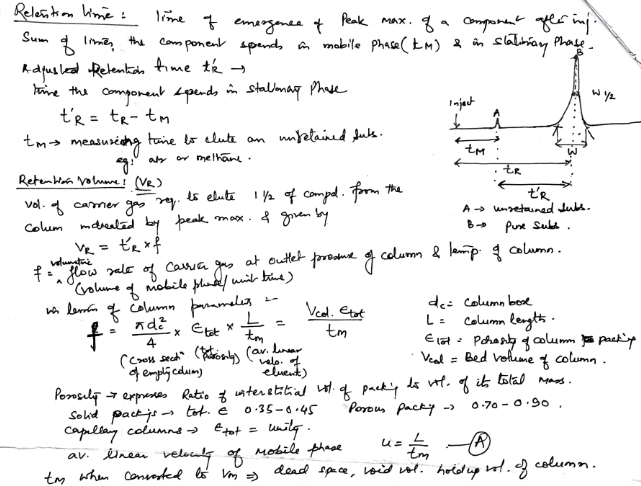 Retention time : time of emergence of Peak max. of a component after inj.
Sum of times the component spends in mobile phase (tM) & in stationary Phase.
Adjusted Retention time t'R →
time the component spends in stationary Phase
t'R = tR - tM
tM → measuring time to elute an unretained subs.
eg: air or methane.
Inject
A
B
W 1/2
tM
W
tR
t'R
A → unretained subs.
B → pure subs.
Retention Volume! (VR)
vol. of carrier gas req. to elute 1/2 of compd. from the
colum indicated by peak max. & given by
VR = t'R × f
f = volumetric flow rate of carrier gas at outlet pressure of column & temp. of column.
(volume of mobile phase/unit time)
in terms of column parameters :-
f = πdc²/4 × Etot × L/tm = Vcol. Etot / tm
(cross sectn of empty colum) (tot. porosity) (av. linear velo. of eluent)
dc = column bore
L = column length.
Etot = Porosity of column packing
Vcol = Bed volume of column.
Porosity → expresses Ratio of interstitial vol. of packing to vol. of its total mass.
Solid packings → tot. E 0.35-0.45 Porous packing → 0.70-0.90.
capillary columns → Etot = unity.
av. linear velocity of mobile phase u = L/tm — (A)
tm when converted to Vm ⇒ dead space, void vol. holdup vol. of column.